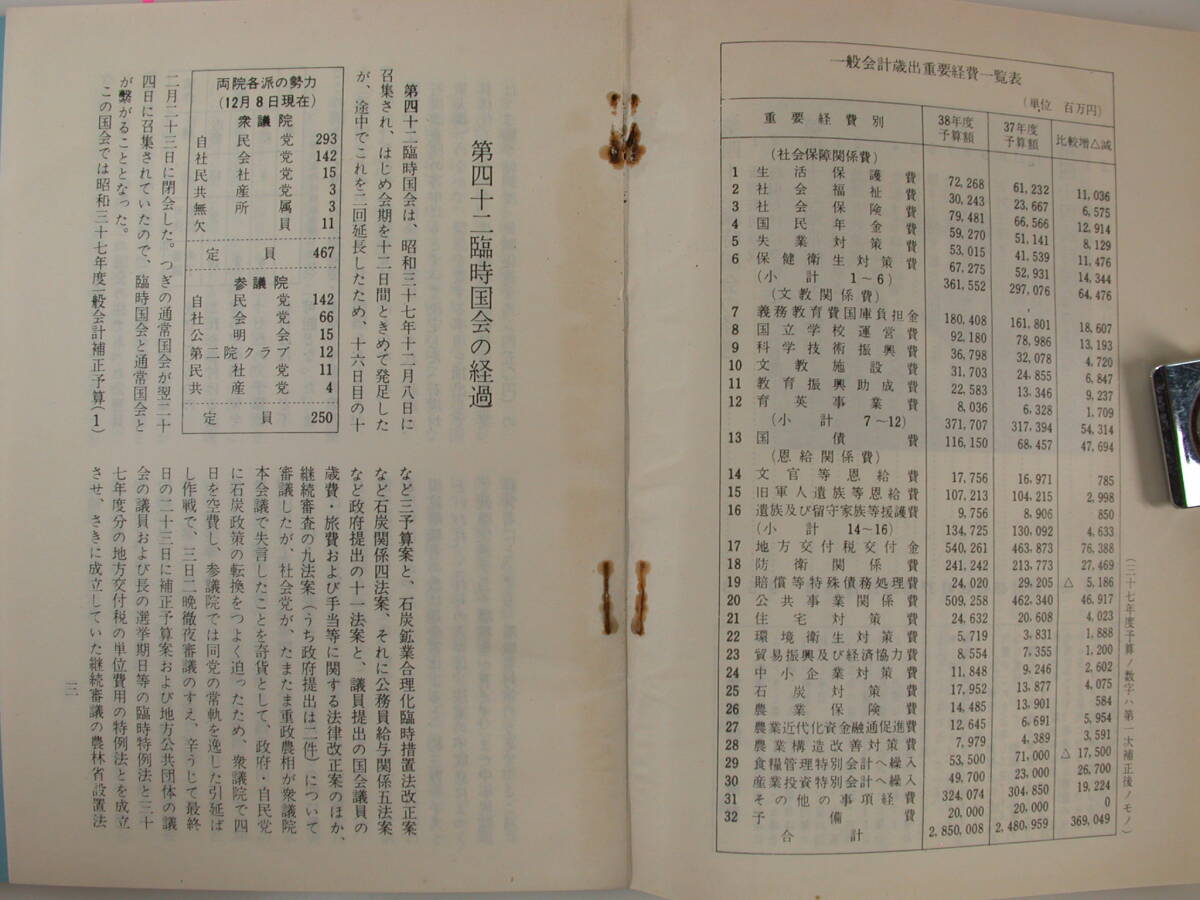 一般会計歳出重要経費一覧表
(単位 百万円)
重要経費別 38年度予算額 37年度予算額 比較増△減
(社会保障関係費)
1 生活保護費 72,268 61,232 11,036
2 社会福祉費 30,243 23,667 6,575
3 社会保険費 79,481 66,566 12,914
4 国民年金費 59,270 51,141 8,129
5 失業対策費 53,015 41,539 11,476
6 保健衛生対策費 67,275 52,931 14,344
(小計 1〜6) 361,552 297,076 64,476
(文教関係費)
7 義務教育費国庫負担金 180,408 161,801 18,607
8 国立学校運営費 92,180 78,986 13,193
9 科学技術振興費 36,798 32,078 4,720
10 文教施設費 31,703 24,855 6,847
11 教育振興助成費 22,583 13,346 9,237
12 育英事業費 8,036 6,328 1,709
(小計 7〜12) 371,707 317,394 54,314
13 国債費 116,150 68,457 47,694
(恩給関係費)
14 文官等恩給費 17,756 16,971 785
15 旧軍人遺族等恩給費 107,213 104,215 2,998
16 遺族及び留守家族等援護費 9,756 8,906 850
(小計 14〜16) 134,725 130,092 4,633
17 地方交付税交付金 540,261 463,873 76,388
18 防衛関係費 241,242 213,773 27,469
19 賠償等特殊債務処理費 24,020 29,205 △ 5,186
20 公共事業関係費 509,258 462,340 46,917
21 住宅対策費 24,632 20,608 4,023
22 環境衛生対策費 5,719 3,831 1,888
23 貿易振興及び経済協力費 8,554 7,355 1,200
24 中小企業対策費 11,848 9,246 2,602
25 石炭対策費 17,952 13,877 4,075
26 農業保険費 14,485 13,901 584
27 農業近代化資金融通促進費 12,645 6,691 5,954
28 農業構造改善対策費 7,979 4,389 3,591
29 食糧管理特別会計へ繰入 53,500 71,000 △ 17,500
30 産業投資特別会計へ繰入 49,700 23,000 26,700
31 その他の事項経費 324,074 304,850 19,224
32 予備費 20,000 20,000 0
合計 2,850,008 2,480,959 369,049
(三十七年度予算ノ数字ハ第一次補正後ノモノ)
第四十二臨時国会の経過
第四十二臨時国会は、昭和三十七年十二月八日に
召集され、はじめ会期を十二日間ときめて発足した
が、途中でこれを二回延長したため、十六日目の十
両院各派の勢力
(12月8日現在)
衆議院
自民党 293
社会党 142
民社党 15
共産党 3
無所属 3
欠員 11
定員 467
参議院
自民党 142
社会党 66
公明会 15
第二院クラブ 12
民社党 11
共産党 4
定員 250
二月二十三日に閉会した。つぎの通常国会が翌二十
四日に召集されていたので、臨時国会と通常国会と
が繫がることとなった。
この国会では昭和三十七年度一般会計補正予算(1)
など三予算案と、石炭鉱業合理化臨時措置法改正案
など石炭関係四法案、それに公務員給与関係五法案
など政府提出の十一法案と、議員提出の国会議員の
歳費・旅費および手当等に関する法律改正案のほか、
継続審査の九法案(うち政府提出は二件)について
審議したが、社会党が、たまたま重政農相が衆議院
本会議で失言したことを奇貨として、政府・自民党
に石炭政策の転換をつよく迫ったため、衆議院で四
日を空費し、参議院では同党の常軌を逸した引延ば
し作戦で、三日二晩徹夜審議のすえ、辛うじて最終
日の二十三日に補正予算案および地方公共団体の議
会の議員および長の選挙期日等の臨時特例法と三十
七年度分の地方交付税の単位費用の特例法とを成立
させ、さきに成立していた継続審議の農林省設置法
三